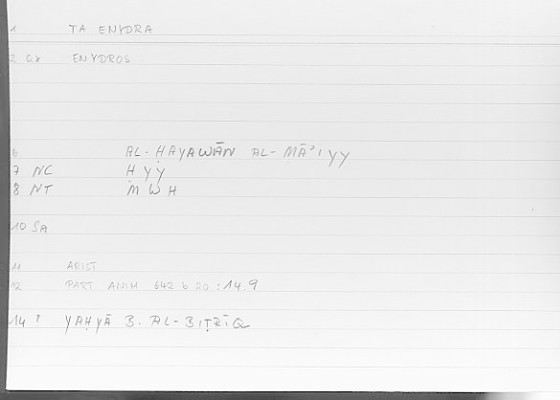 1 TA ENYDRA
2 Gr ENYDROS
6 AL-ḤAYAWĀN AL-MĀʾIYY
7 NC ḤYY
8 NT MWH
10 SA
11 ARIST
12 PART ANIM 642 b 20 : 14.9
14 ? YAḤYĀ B. AL-BIṬRĪQ